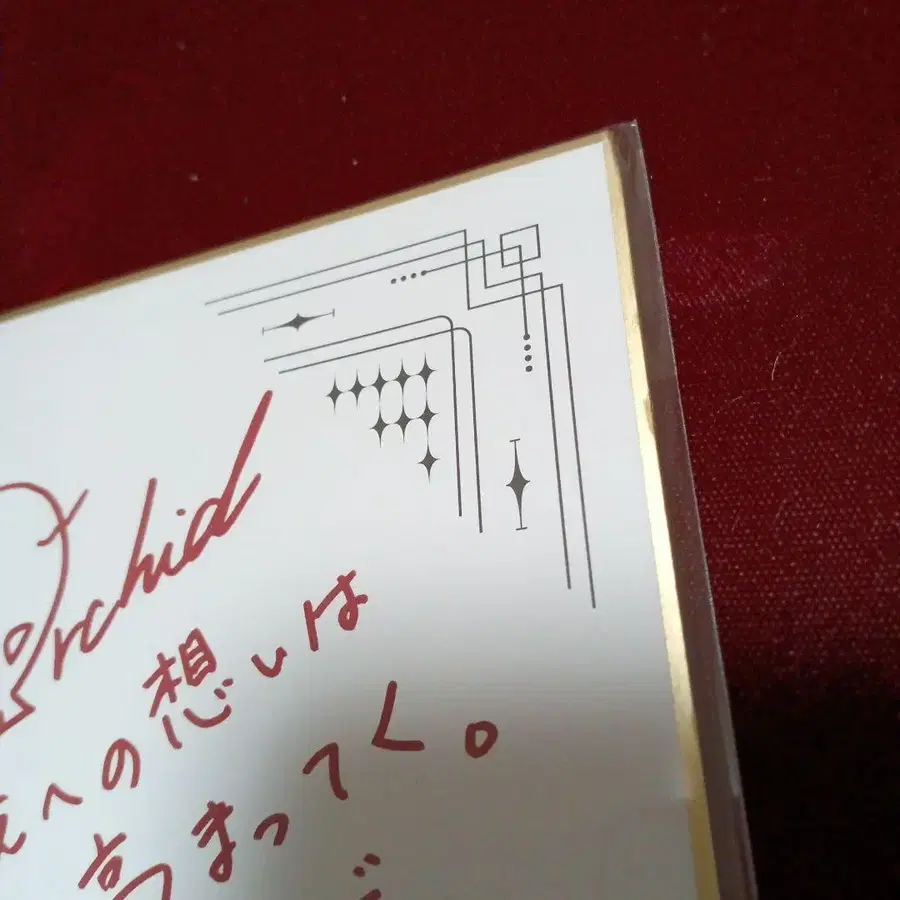 Orchid
への想いは
高まってく。